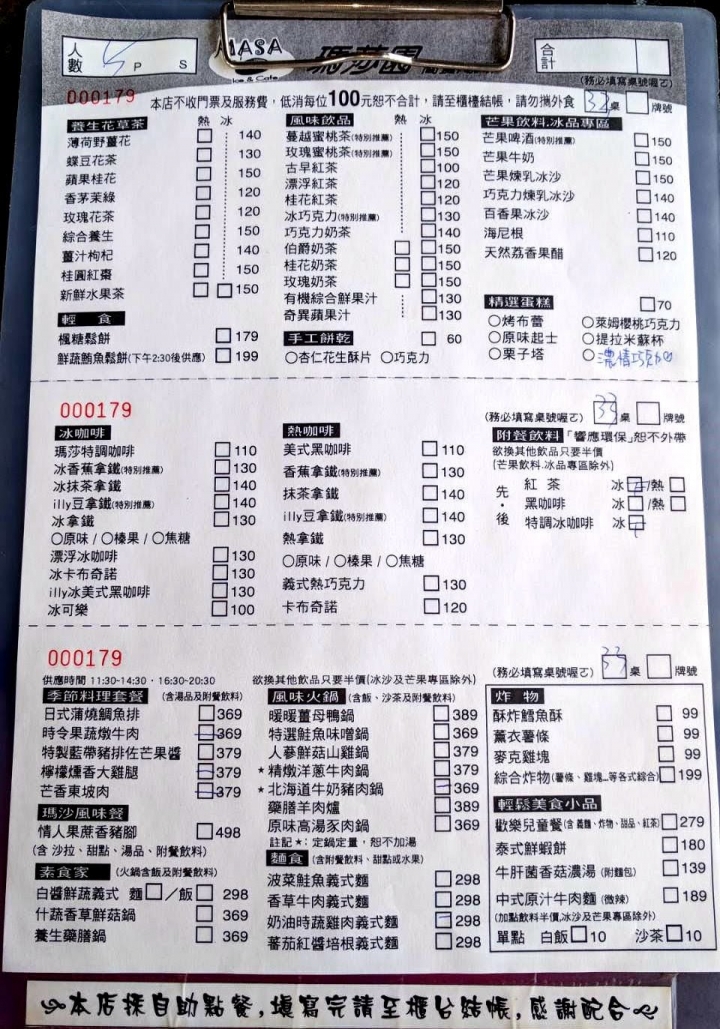 人數 P S
MASA
瑪莎園
合計
(務必填寫桌號喔ㄛ)
000179 本店不收門票及服務費，低消每位100元恕不合計，請至櫃檯結帳，請勿攜外食 桌 牌號
養生花草茶 熱 冰
薄荷野薑花 140
蝶豆花茶 130
蘋果桂花 150
香茅茉綠 120
玫瑰花茶 120
綜合養生 150
薑汁枸杞 140
桂圓紅棗 150
新鮮水果茶 150
輕食
楓糖鬆餅 179
鮮蔬鮪魚鬆餅(下午2:30後供應) 199
風味飲品 熱 冰
蔓越蜜桃茶(特別推薦) 150
玫瑰蜜桃茶(特別推薦) 150
古早紅茶 100
漂浮紅茶 120
桂花紅茶 120
冰巧克力(特別推薦) 130
巧克力奶茶 140
伯爵奶茶 150
桂花奶茶 150
玫瑰奶茶 150
有機綜合鮮果汁 130
奇異蘋果汁 130
手工餅乾 60
○杏仁花生酥片 ○巧克力
芒果飲料.冰品專區
芒果啤酒(特別推薦) 150
芒果牛奶 150
芒果煉乳冰沙 150
巧克力煉乳冰沙 140
百香果冰沙 140
海尼根 110
天然荔香果醋 120
精選蛋糕 70
○烤布蕾 ○萊姆櫻桃巧克力
○原味起士 ○提拉米蘇杯
○栗子塔 ○濃情巧克力
000179
(務必填寫桌號喔ㄛ) 33 桌 牌號
冰咖啡
瑪莎特調咖啡 110
冰香蕉拿鐵(特別推薦) 130
冰抹茶拿鐵 140
illy豆拿鐵(特別推薦) 140
冰拿鐵 130
○原味/○榛果/○焦糖
漂浮冰咖啡 130
冰卡布奇諾 130
illy冰美式黑咖啡 130
冰可樂 100
熱咖啡
美式黑咖啡 110
香蕉拿鐵(特別推薦) 130
抹茶拿鐵 140
illy豆拿鐵(特別推薦) 140
熱拿鐵 130
○原味/○榛果/○焦糖
義式熱巧克力 130
卡布奇諾 120
附餐飲料「響應環保」恕不外帶
欲換其他飲品只要半價
(芒果飲料.冰品專區除外)
先・後
紅茶 冰 /熱
黑咖啡 冰 /熱
特調冰咖啡 冰
000179
(務必填寫桌號喔ㄛ) 33 桌 牌號
供應時間 11:30-14:30．16:30-20:30 欲換其他飲品只要半價(冰沙及芒果專區除外)
季節料理套餐 (含湯品及附餐飲料)
日式蒲燒鯛魚排 369
時令果蔬燉牛肉 369
特製藍帶豬排佐芒果醬 379
檸檬燻香大雞腿 379
芒香東坡肉 379
瑪沙風味餐
情人果蔗香豬腳 498
(含 沙拉、甜點、湯品、附餐飲料)
素食家 (火鍋含飯及附餐飲料)
白醬鮮蔬義式 麵 ／飯 298
什蔬香草鮮菇鍋 369
養生藥膳鍋 369
風味火鍋 (含飯、沙茶及附餐飲料)
暖暖薑母鴨鍋 389
特選鮭魚味噌鍋 369
人蔘鮮菇山雞鍋 379
★精燉洋蔥牛肉鍋 379
★北海道牛奶豬肉鍋 369
藥膳羊肉爐 389
原味高湯家肉鍋 369
註記★：定鍋定量，恕不加湯
麵食 (含附餐飲料、甜點或水果)
波菜鮭魚義式麵 298
香草牛肉義式麵 298
奶油時蔬雞肉義式麵 298
蕃茄紅醬培根義式麵 298
炸物
酥炸鱈魚酥 99
薰衣薯條 99
麥克雞塊 99
綜合炸物(薯條、雞塊...等各式綜合) 199
輕鬆美食小品
歡樂兒童餐(含 義麵、炸物、甜品、紅茶) 279
泰式鮮蝦餅 180
牛肝菌香菇濃湯(附麵包) 139
中式原汁牛肉麵(微辣) 189
(加點飲料半價,冰沙及芒果專區除外)
單點 白飯 10 沙茶 10
本店採自助點餐,填寫完請至櫃台結帳,感謝配合